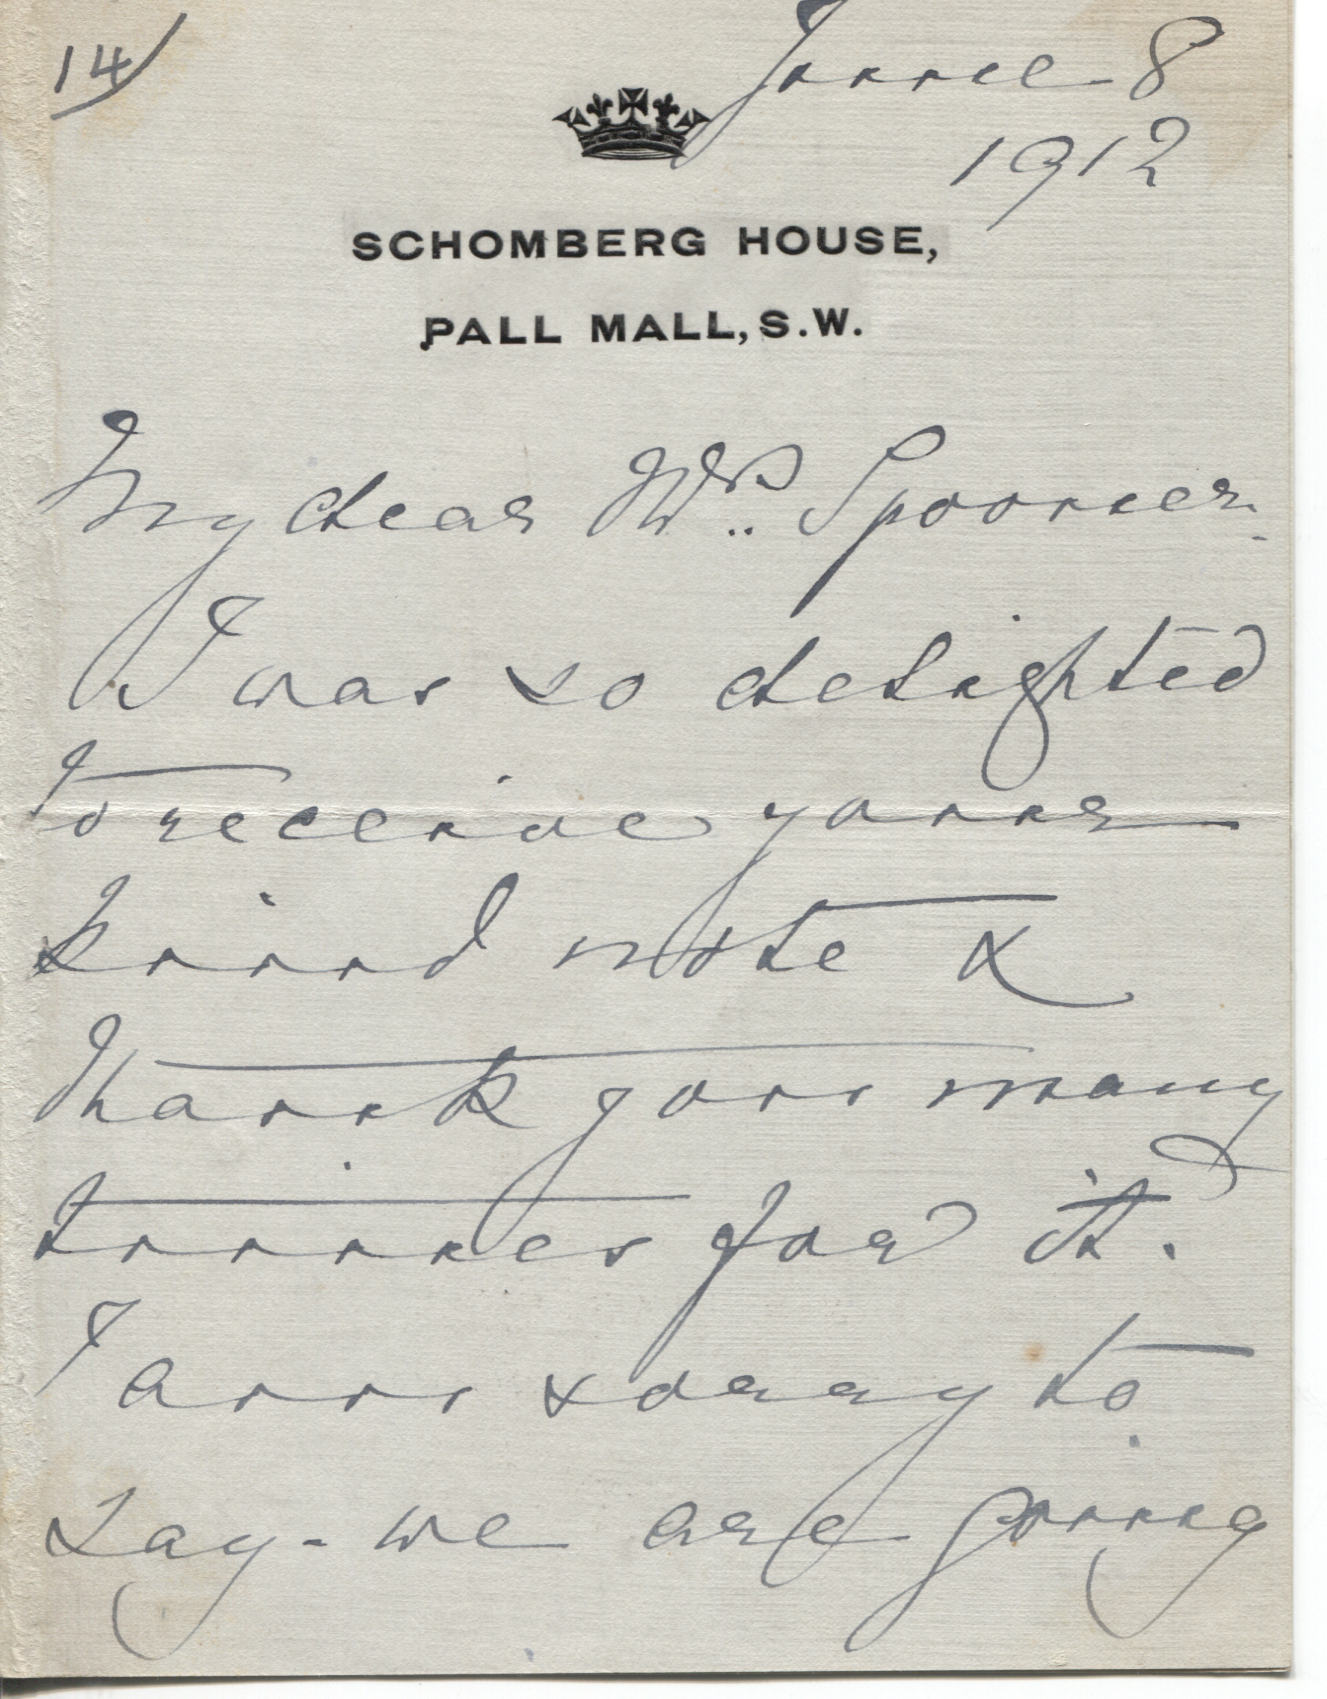 14/
June 8
1912
SCHOMBERG HOUSE,
PALL MALL, S.W.
My dear Mrs. Spooner.
I was so delighted
to receive your
kind note &
thank you many
times for it.
I am sorry to
say - we are going